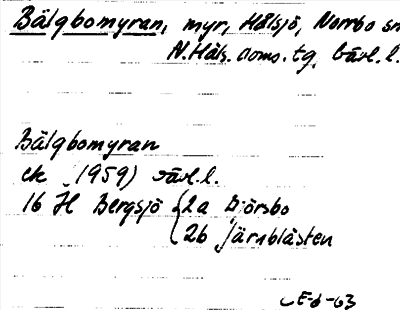 Bälgbomyran, myr, Hålsjö, Norrbo sn
N. Häls. doms. tg. Gävl. l.
Bälgbomyran
ek (1959) Gävl. l.
16 H Bergsjö { 2a Björsbo
2b Järnblästen
E-6-63